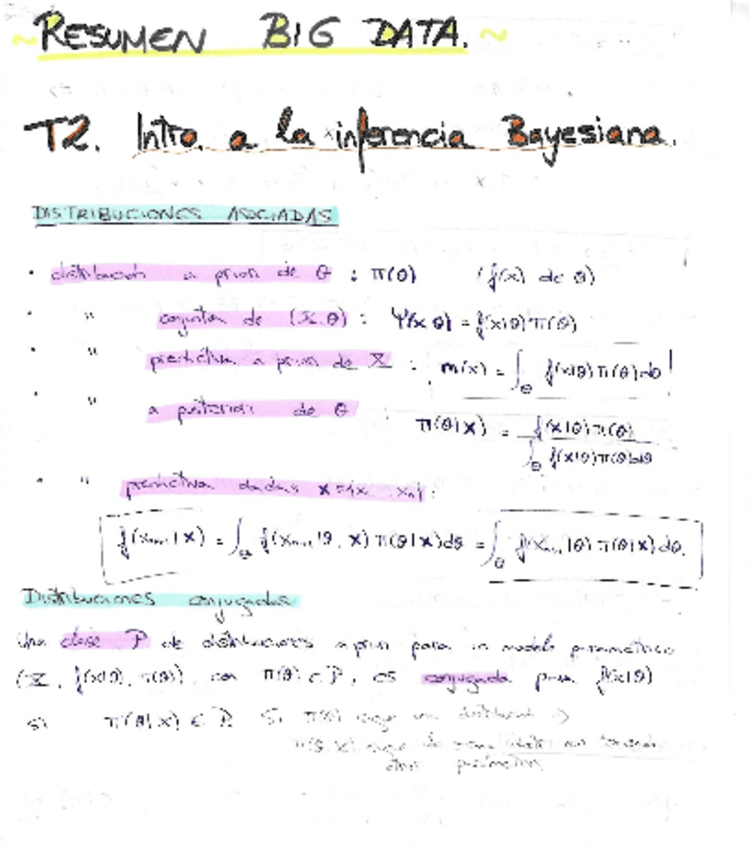 ~ RESUMEN BIG DATA. ~
T2. Intro. a la inferencia Bayesiana.
DISTRIBUCIONES ASOCIADAS
· distribución a priori de θ : π(θ) (f(x) de θ)
· " conjunta de (X, θ) : Ψ(x θ) = f(x|θ) π(θ)
· " predictiva a priori de X : m(x) = ∫_Θ f(x|θ) π(θ) dθ
· " a posteriori de θ π(θ|x) = f(x|θ) π(θ) / ∫_Θ f(x|θ) π(θ) dθ
· " predictiva dadas x = (x₁ xₙ) :
f(xₙ₊₁|x) = ∫_Θ f(xₙ₊₁|θ, x) π(θ|x) dθ = ∫_Θ f(xₙ₊₁|θ) π(θ|x) dθ.
Distribuciones conjugadas
Una clase P de distribuciones a priori para un modelo paramétrico
(X, f(x|θ), π(θ)), con π(θ) ∈ P, es conjugada para f(x|θ)
si π(θ|x) ∈ P. Si π(θ) sigue una distribución →
π(θ|x) sigue la misma
otros parámetros